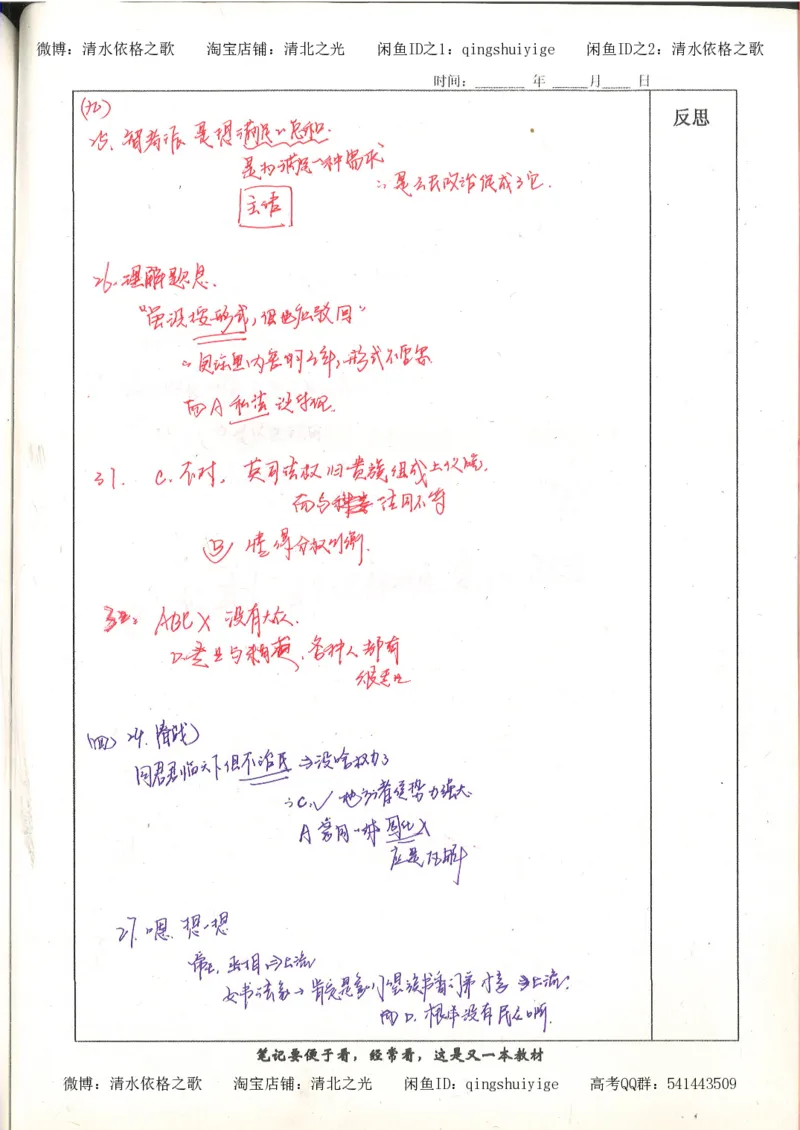 微博：清水依格之歌 淘宝店铺：清北之光 闲鱼ID之1：qingshuiyige 闲鱼ID之2：清水依格之歌
时间：____年____月____日
反思
(九)
25、智者派 是想满足~总和.
是为满足一种需求
∴是公民政治促成了它.
主语
26.理解题息.
"虽没按形式，但也驳回"
形式不需要
而A 私法 没体现.
31. C.不对，英司法权归贵族组成上议院.
而与 不符
B 懂得分权制衡.
32. ABC X 没有大众.
D. 与 ，各种人都有
很
(四) 24.(春战)
周君临天下但不治民⇒没啥权力了
∴C.√ 地方诸侯势力强大.
A 蒙用一对 固化X
应是瓦解
27.嗯.想一想
帝王、丞相⇒上流
女书法家→肯定是 书香门第才 ⇒上流:
而D.根本没有民众啊.
笔记要便于看，经常看，这是又一本教材
微博：清水依格之歌 淘宝店铺：清北之光 闲鱼ID：qingshuiyige 高考QQ群：541443509